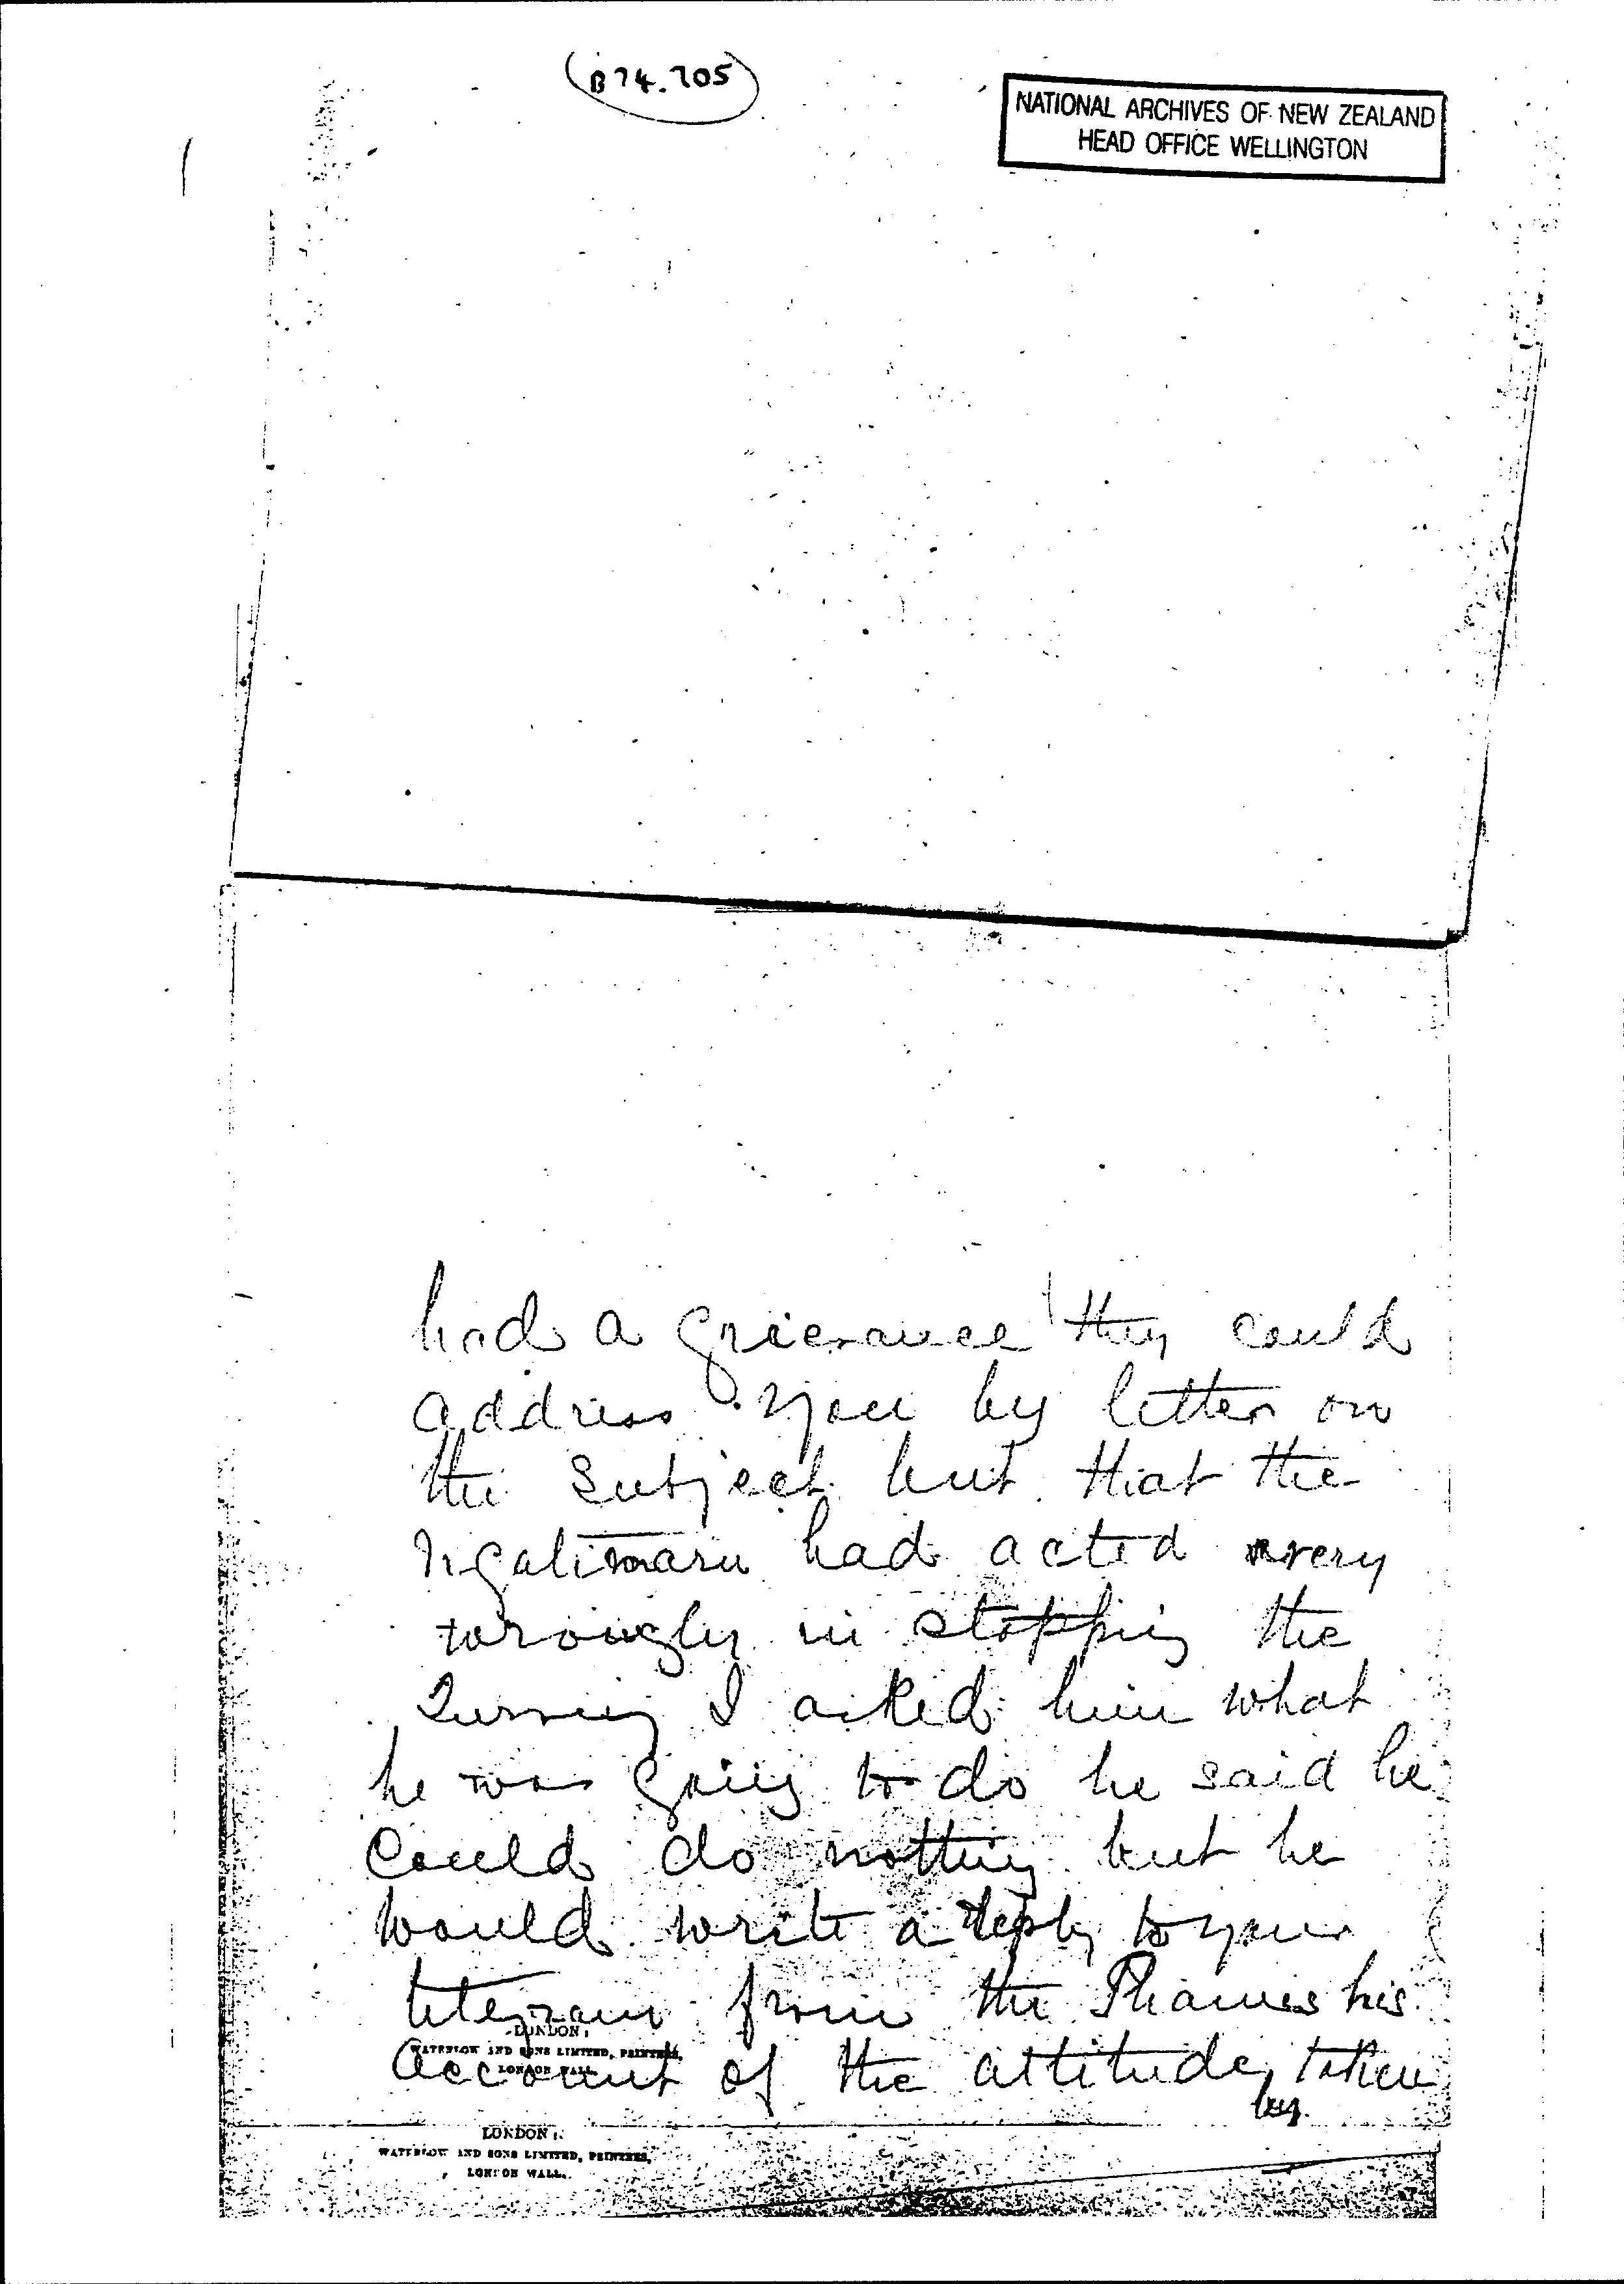 (B74.705)
NATIONAL ARCHIVES OF NEW ZEALAND
HEAD OFFICE WELLINGTON
had a grievance they could
address you by letter on
the subject but that the
Ngatimaru had acted very
wrongly in stopping the
Survey I asked him what
he was going to do he said he
could do nothing but he
would write a reply to your
telegram from the Thames his
LONDON:
WATERLOW AND SONS LIMITED, PRINTERS,
LONDON WALL.
account of the attitude taken
by.
LONDON:
WATERLOW AND SONS LIMITED, PRINTERS,
LONDON WALL.